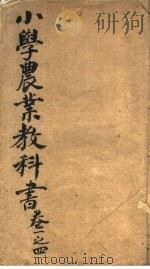 小學農業教科書卷一之四